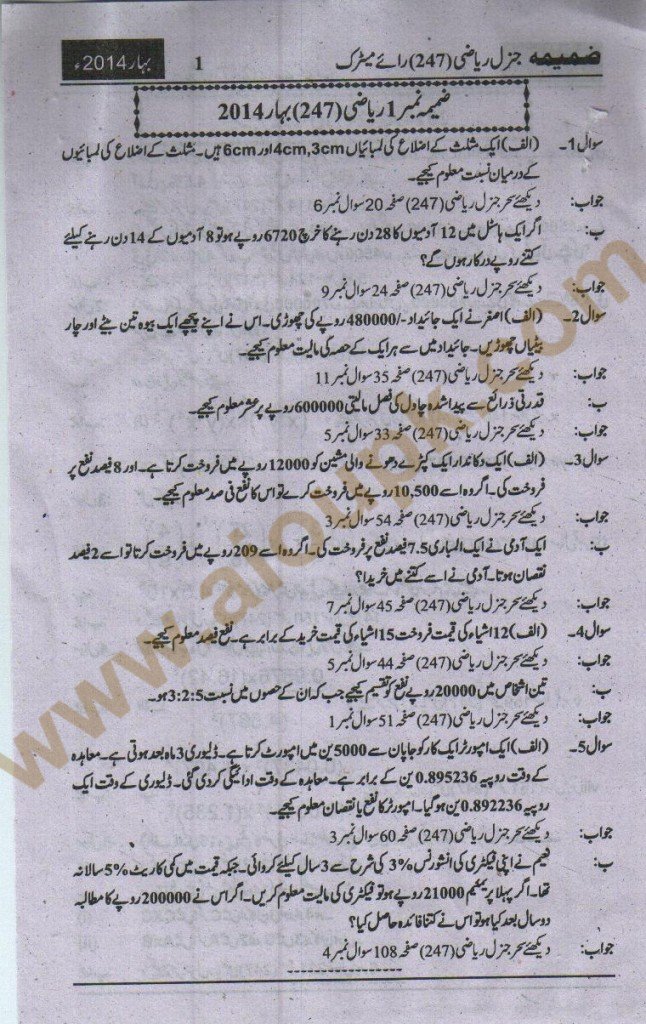 ضمیمہ جنرل ریاضی (247) رائے میٹرک 1 بہار 2014ء
ضمیمہ نمبر 1 ریاضی (247) بہار 2014
سوال 1۔ (الف) ایک مثلث کے اضلاع کی لمبائیاں 4cm,3cm اور 6cm ہیں۔ مثلث کے اضلاع کی لمبائیوں
کے درمیان نسبت معلوم کیجیے۔
جواب: دیکھئے سحر جنرل ریاضی (247) صفحہ 20 سوال نمبر 6
ب: اگر ایک ہاسٹل میں 12 آدمیوں کا 28 دن رہنے کا خرچ 6720 روپے ہو تو 8 آدمیوں کے 14 دن رہنے کیلئے
کتنے روپے درکار ہوں گے؟
جواب: دیکھئے سحر جنرل ریاضی (247) صفحہ 24 سوال نمبر 9
سوال 2۔ (الف) اصغر نے ایک جائیداد -/480000 روپے کی چھوڑی۔ اس نے اپنے پیچھے ایک بیوہ تین بیٹے اور چار
بیٹیاں چھوڑیں۔ جائیداد میں سے ہر ایک کے حصہ کی مالیت معلوم کیجیے۔
جواب: دیکھئے سحر جنرل ریاضی (247) صفحہ 35 سوال نمبر 11
ب: قدرتی ذرائع سے پیدا شدہ چاول کی فصل مالیتی 600000 روپے پر عشر معلوم کیجیے۔
جواب: دیکھئے سحر جنرل ریاضی (247) صفحہ 33 سوال نمبر 5
سوال 3۔ (الف) ایک دکاندار ایک کپڑے دھونے والی مشین کو 12000 روپے میں فروخت کرتا ہے۔ اور 8 فیصد نفع پر
فروخت کی۔ اگر وہ اسے 10,500 روپے میں فروخت کرے تو اس کا نفع فی صد معلوم کیجیے۔
جواب: دیکھئے سحر جنرل ریاضی (247) صفحہ 54 سوال نمبر 3
ب: ایک آدمی نے ایک الماری 7.5 فیصد نفع پر فروخت کی۔ اگر وہ اسے 209 روپے میں فروخت کرتا تو اسے 2 فیصد
نقصان ہوتا۔ آدمی نے اسے کتنے میں خریدا؟
جواب: دیکھئے سحر جنرل ریاضی (247) صفحہ 45 سوال نمبر 7
سوال 4۔ (الف) 12 اشیاء کی قیمت فروخت 15 اشیاء کی قیمت خرید کے برابر ہے۔ نفع فیصد معلوم کیجیے۔
جواب: دیکھئے سحر جنرل ریاضی (247) صفحہ 44 سوال نمبر 5
ب: تین اشخاص میں 20000 روپے نفع کو تقسیم کیجیے جب کہ ان کے حصوں میں نسبت 3:2:5 ہو۔
جواب: دیکھئے سحر جنرل ریاضی (247) صفحہ 51 سوال نمبر 1
سوال 5۔ (الف) ایک امپورٹر ایک کار کو جاپان سے 5000 ین میں امپورٹ کرتا ہے۔ ڈلیوری 3 ماہ بعد ہوتی ہے۔ معاہدہ
کے وقت روپیہ 0.895236 ین کے برابر ہے۔ معاہدہ کے وقت ادائیگی کر دی گئی۔ ڈلیوری کے وقت ایک
روپیہ 0.892236 ین ہو گیا۔ امپورٹر کا نفع یا نقصان معلوم کیجیے۔
جواب: دیکھئے سحر جنرل ریاضی (247) صفحہ 60 سوال نمبر 3
ب: فہیم نے اپنی فیکٹری کی انشورنس %3 کی شرح سے 3 سال کیلئے کروائی۔ جبکہ قیمت میں کمی کا ریٹ %5 سالانہ
تھا۔ اگر پہلا پریمیم 21000 روپے ہو تو فیکٹری کی مالیت معلوم کریں۔ اگر اس نے 200000 روپے کا مطالبہ
دو سال بعد کیا ہو تو اس نے کتنا فائدہ حاصل کیا؟
جواب: دیکھئے سحر جنرل ریاضی (247) صفحہ 108 سوال نمبر 4
www.aioubk.com